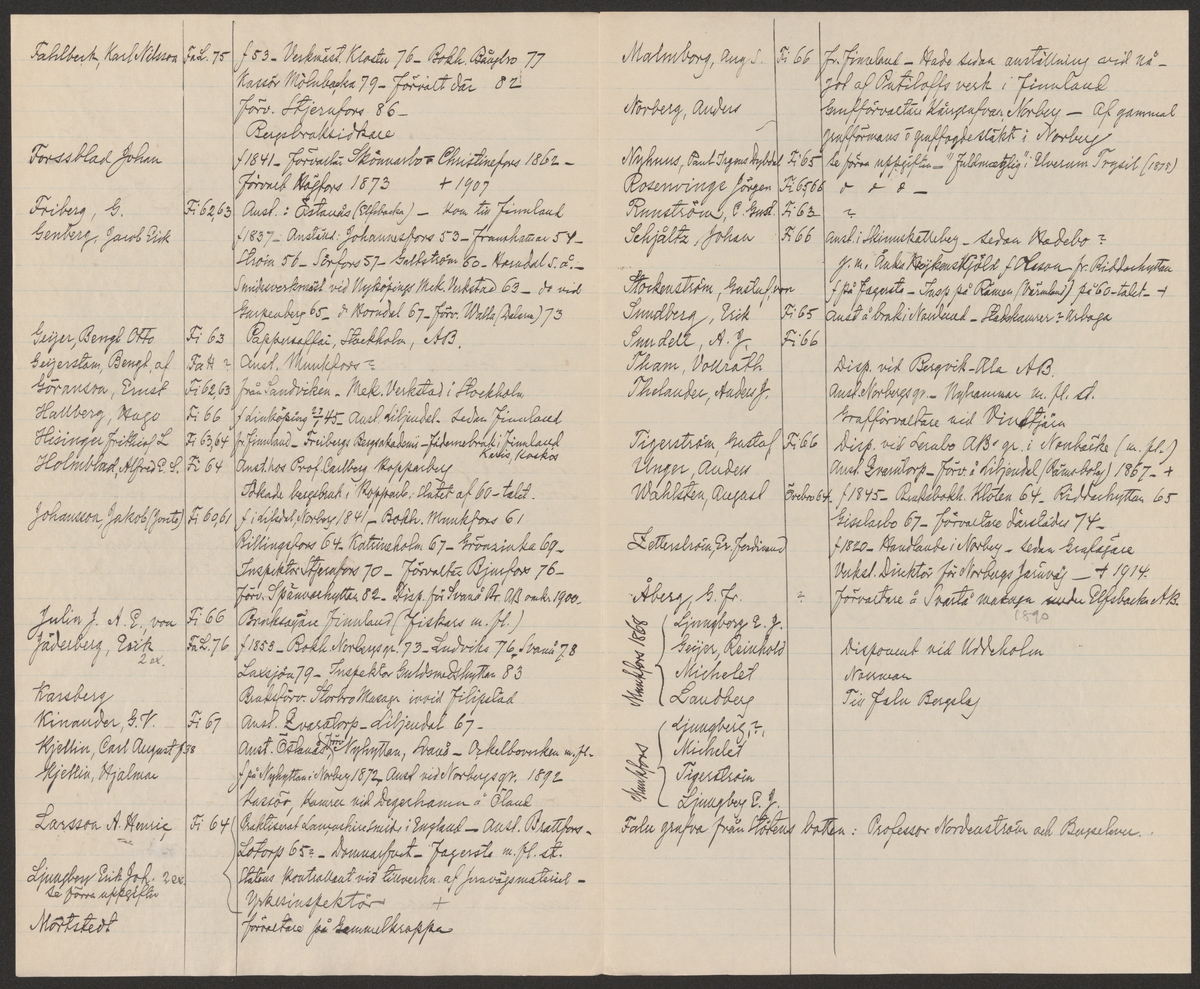 Fahlbeck, Karl Nilsson FaL. 75 f 53 – Verkmäst. Kloster 76 – Bokh. Bångbro 77
Kassör Mölnbacka 79 – Förvalt där 82
Förv. Stjernfors 86 –
Bergsbruksidkare
Forssblad Johan f 1841 – Förvaltare Skönnarbo Christinefors 1862 –
Förvalt Högfors 1873 + 1907
Friberg, G. Fi 62,63 Anst.: Östanås (Elfsbacka) – kom till Finnland
Genberg, Jacob Erik f 1837 – Anställd: Johannesfors 53 – Framhammar 54 –
Ström 56 – Sörfors 57 – Galtström 60 – Harndal s. å. –
Smidesverkmäst vid Nyköpings Mek. Verkstad 63 – do vid
65 – d Horndal 67 – Förv. Walla (Dalarne) 73
Geijer, Bengt Otto Fi 63 Pappersaffär, Stockholm, AB.
Geijerstam, Bengt, af Fa ? Anst. Munkfors ?
Göranson, Ernst Fi 62,63 från Sandviken – Mek. Verkstad i Stockholm
Hallberg, Hugo Fi 66 f Linköping 45 – Anst. Liljendal – sedan Finnland
Hisinger Frithiof L Fi 63,64 fr. Finnland – Freibergs Bergsakademi – Fädernebruk i Finnland
Karis, Koskis
Holmblad, Alfred E. S. Fi 64 Anst. hos Prof. Carlborg Kopparberg
Sökade bergsbruk i Kopparb. i slutet af 60-talet.
Johansson, Jakob (Jonte) Fi 60,61 f i Lilsdal, Norberg 1841 – Bokh. Munkfors 61
Billingsfors 64 – Katrineholm 67 – Grönsinka 69 –
Inspektor Stjernfors 70 – Förvaltar Bjurfors 76 –
Förv. Spännarhyttan 82 – Disp. för Svanå Br. AB omkr. 1900.
Julin J. A. E. von Fi 66 Bruksägare Finnland (Fiskars m. fl.)
Jäderberg, Erik FaL. 76 f 1853 – Bokh. Norbergsgr. 73 – Ludvika 76, Svanå 78
2 ex. Laxsjön 79 – Inspektor Guldsmedshyttan 83
Karsberg Bruksförv. Storbro Masugn invid Filipstad
Kinander, G. V. Fi 67 Anst. Qvarntorp – Liljendal 67 –
Kjellin, Carl August f 38 Anst. Östanås Nyhyttan, Svanå – Ockelboverken m. fl.
Kjellin, Hjalmar f på Nyhyttan i Norberg 1872, Anst vid Norbergsgr. 1892
Kassör, Kamrer vid Degerhamn å Öland
Larsson A. Henric Fi 64 Praktiserat Lancashiresmide i England – Anst. Brattfors –
Lotorp 65 ? – Domnarfvet – Fagersta m. fl. st.
Ljungberg Erik Joh. 2 ex. Statens Kontrollant vid tillverkn. af Jernvägsmateriel –
se förra uppgiften Yrkesinspektör +
Mörtstedt förvaltare på Gammelkroppa
Malmborg, Aug. S. Fi 66 fr. Finnland – Hade sedan anställning vid nå-
got af Putilofts verk i Finnland
Norberg, Anders Gruffförvaltare Kärrgrufvan, Norberg – af gammal
grufförmans o gruffogdesläkt i Norberg
Nyhuus, Paul Fi 65 se förra uppgiften – "Fuldmægtig" i Elverum Trysil (1878)
Rosenvinge Jörgen Fi 65 66 d d d –
Runström, C. Gust. Fi 63 ?
Schjöltz, Johan Fi 66 Anst. i Skinnskatteberg – sedan Hadebo ?
g. m. Änka Heijkenskjöld f Olsson fr Riddarhyttan
Stockenström, Gustaf, von f på Fagersta – Insp på Rämen (Värmland) på 60-talet – +
Sundberg, Erik Fi 65 Anst å bruk i Norrland – ? Arboga
Sundell, A. J. Fi 66
Tham, Vollrath Disp. vid Bergvik-Ala AB.
Thelander, Anders J. Anst. Norbergsgr. – Nyhammar m. fl. st.
Grufförvaltare vid Vintjärn
Tigerström, Gustaf Fi 66 Disp. vid Lernbo AB gr. i Norrbärke (m. fl.)
Unger, Anders Anst. Qvarntorp – Förv. å Liljendal (Rämsbolag) 1867 – +
Wahlsten, August Örebro 64 f 1845 – Bruksbokh. Kloten 64 – Riddarhyttan 65
Gisslarbo 67 – Förvaltare därstädes 74 –
Zetterström, Er. Ferdinand f 1820 – Handlande i Norberg – sedan Grufägare
Verkst. Direktör för Norbergs Jernväg – + 1914.
Åberg, G. Fr. ? Förvaltare å Svartå masugn under Elfsbacka AB.
1890
Munkfors 1868
Ljungborg E. J.
Geijer, Reinhold Disponent vid Uddeholm
Michelet Norrman
Landberg Till Falu Bergslag
Munkfors
Ljungberg, ?
Michelet
Tigerström
Ljungberg E. J.
Falu grufva från Stötens botten: Professor Nordenström och Buselever.